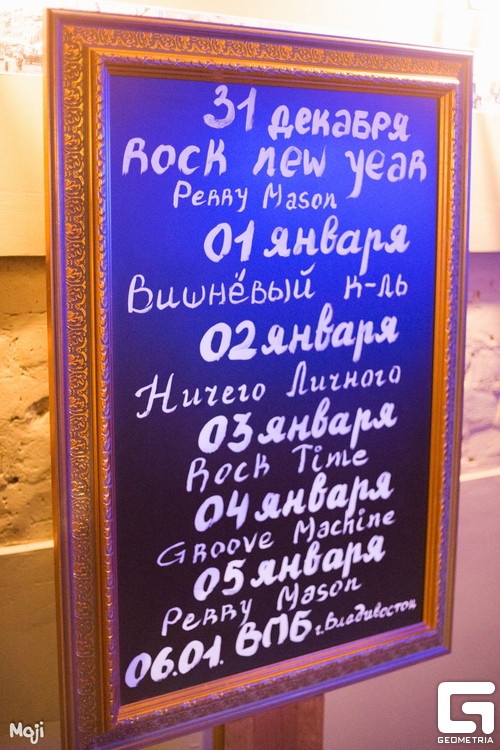 31 декабря
Rock new year
Perry Mason
01 января
Вишнёвый к-ль
02 января
Ничего Личного
03 января
Rock Time
04 января
Groove Machine
05 января
Perry Mason
06.01. ВПБ г. Владивосток
Maji
G
GEOMETRIA